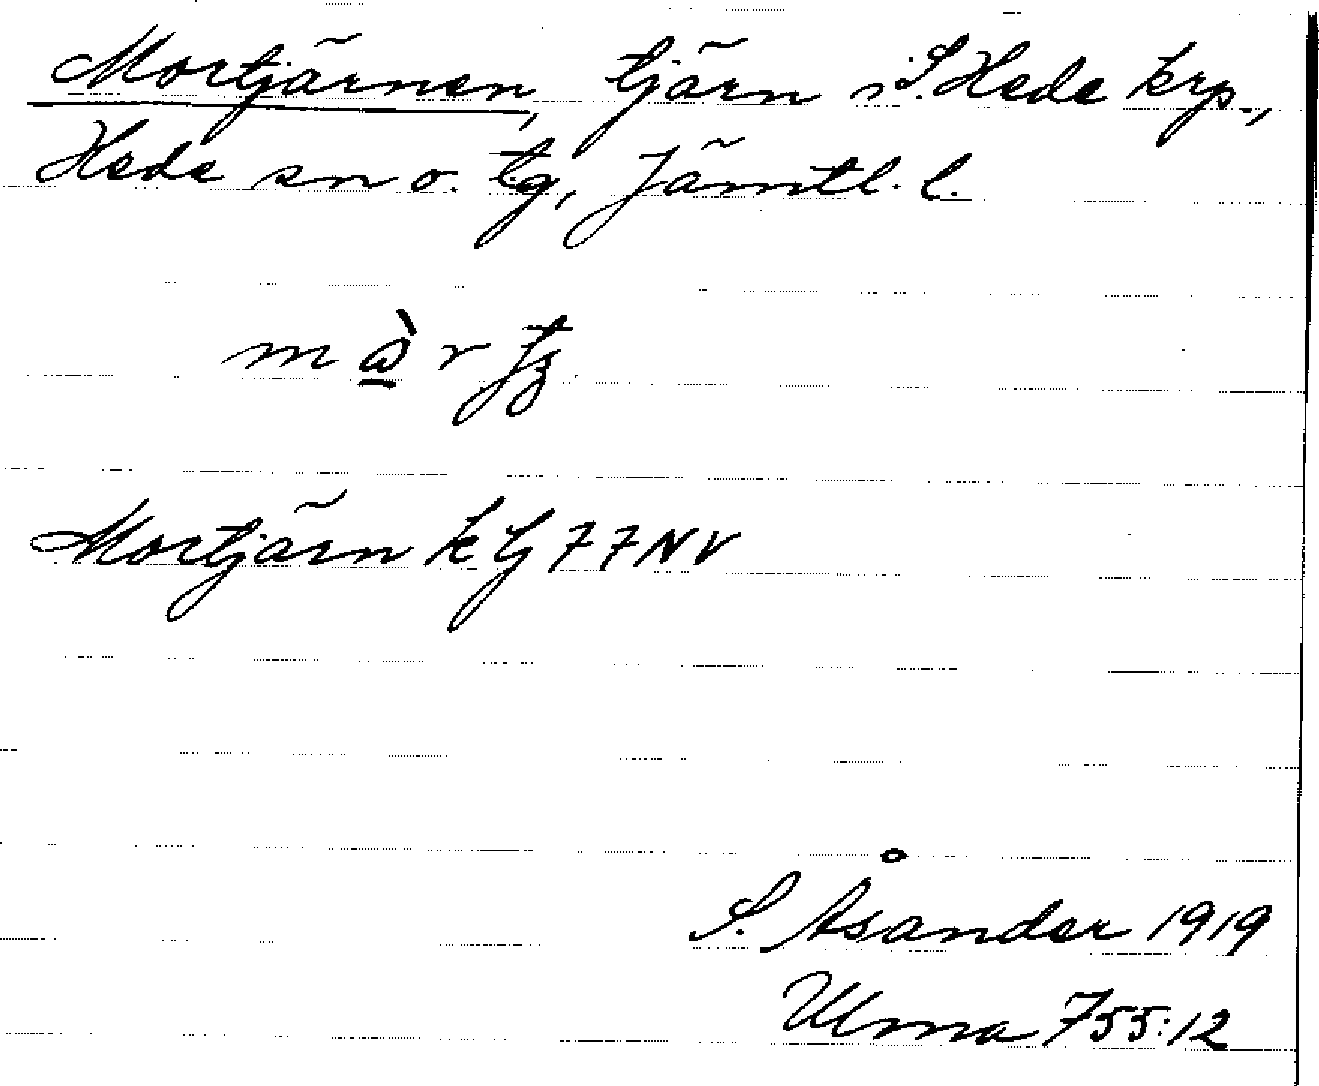 Mortjärnen, tjärn i S. Hede krp.,
Hede sn o. tg, Jämtl. l.
Mortjärn kG 77NV
S. Åsander 1919
Ulma 755:12